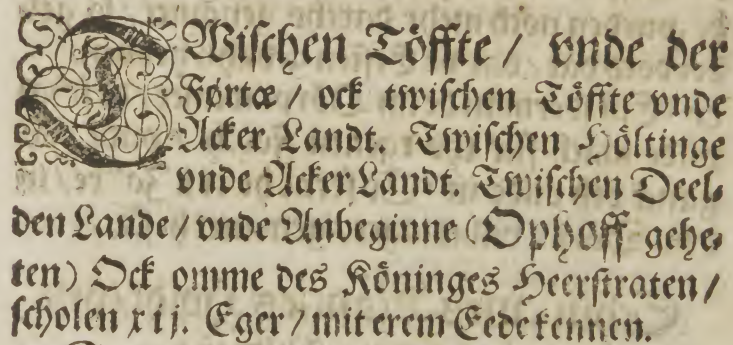 TWischen Töffte / vnde der
Førtæ / ock twischen Töffte vnde
Acker Landt. Twischen Höltinge
vnde Acker Landt. Twischen Deel-
den Lande / vnde Anbeginne (Ophoff gehe-
ten) Ock omme des Köninges Heerstraten /
scholen xij. Eger / mit erem Eede kennen.